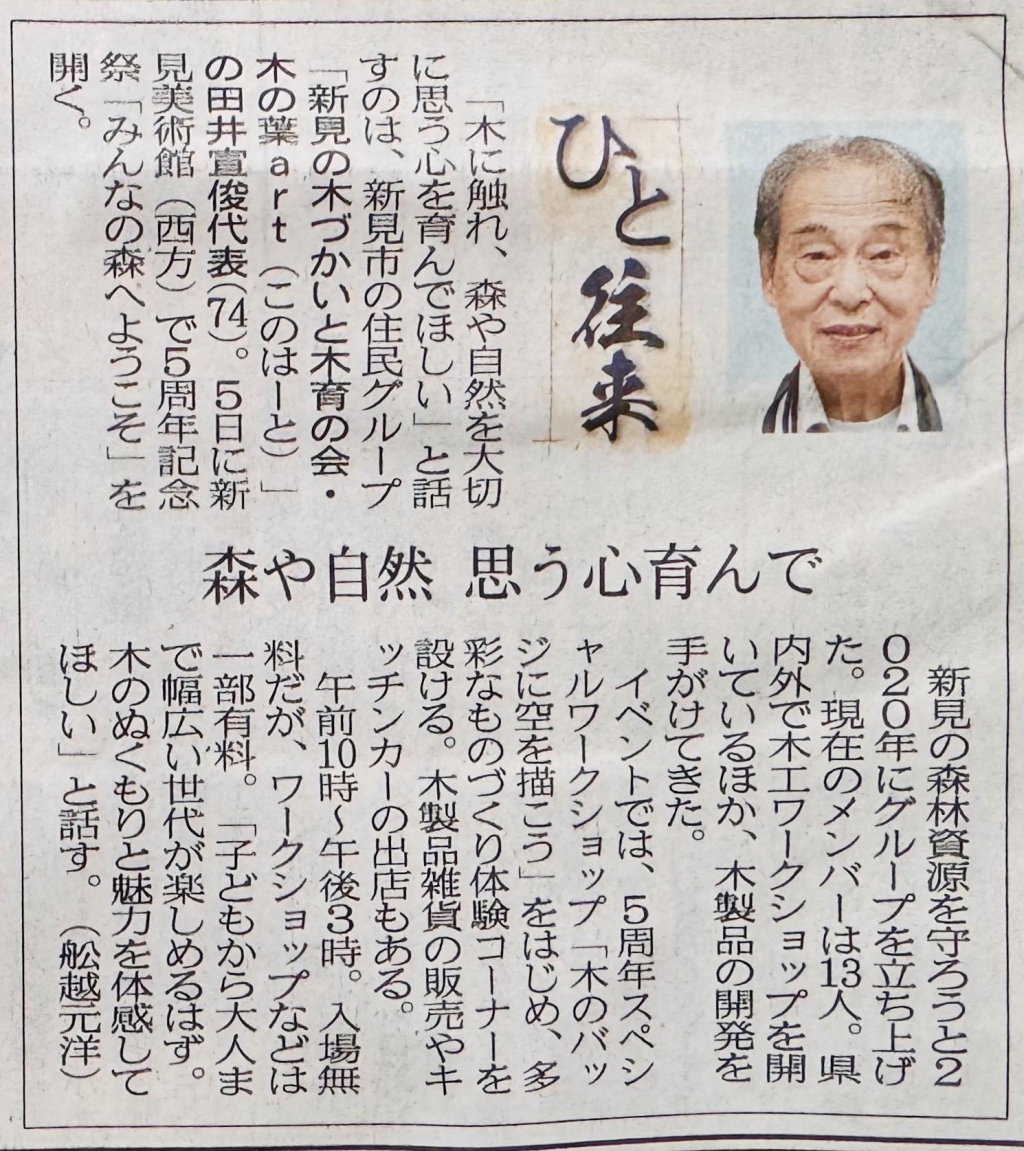 ひと往来
「木に触れ、森や自然を大切
に思う心を育んでほしい」と話
すのは、新見市の住民グループ
「新見の木づかいと木育の会・
木の葉art(このはーと)」
の田井宣俊代表(74)。5日に新
見美術館(西方)で5周年記念
祭「みんなの森へようこそ」を
開く。
森や自然 思う心育んで
新見の森林資源を守ろうと2
020年にグループを立ち上げ
た。現在のメンバーは13人。県
内外で木工ワークショップを開
いているほか、木製品の開発を
手がけてきた。
イベントでは、5周年スペシ
ャルワークショップ「木のバッ
ジに空を描こう」をはじめ、多
彩なものづくり体験コーナーを
設ける。木製品雑貨の販売やキ
ッチンカーの出店もある。
午前10時~午後3時。入場無
料だが、ワークショップなどは
一部有料。「子どもから大人ま
で幅広い世代が楽しめるはず。
木のぬくもりと魅力を体感して
ほしい」と話す。(舩越元洋)